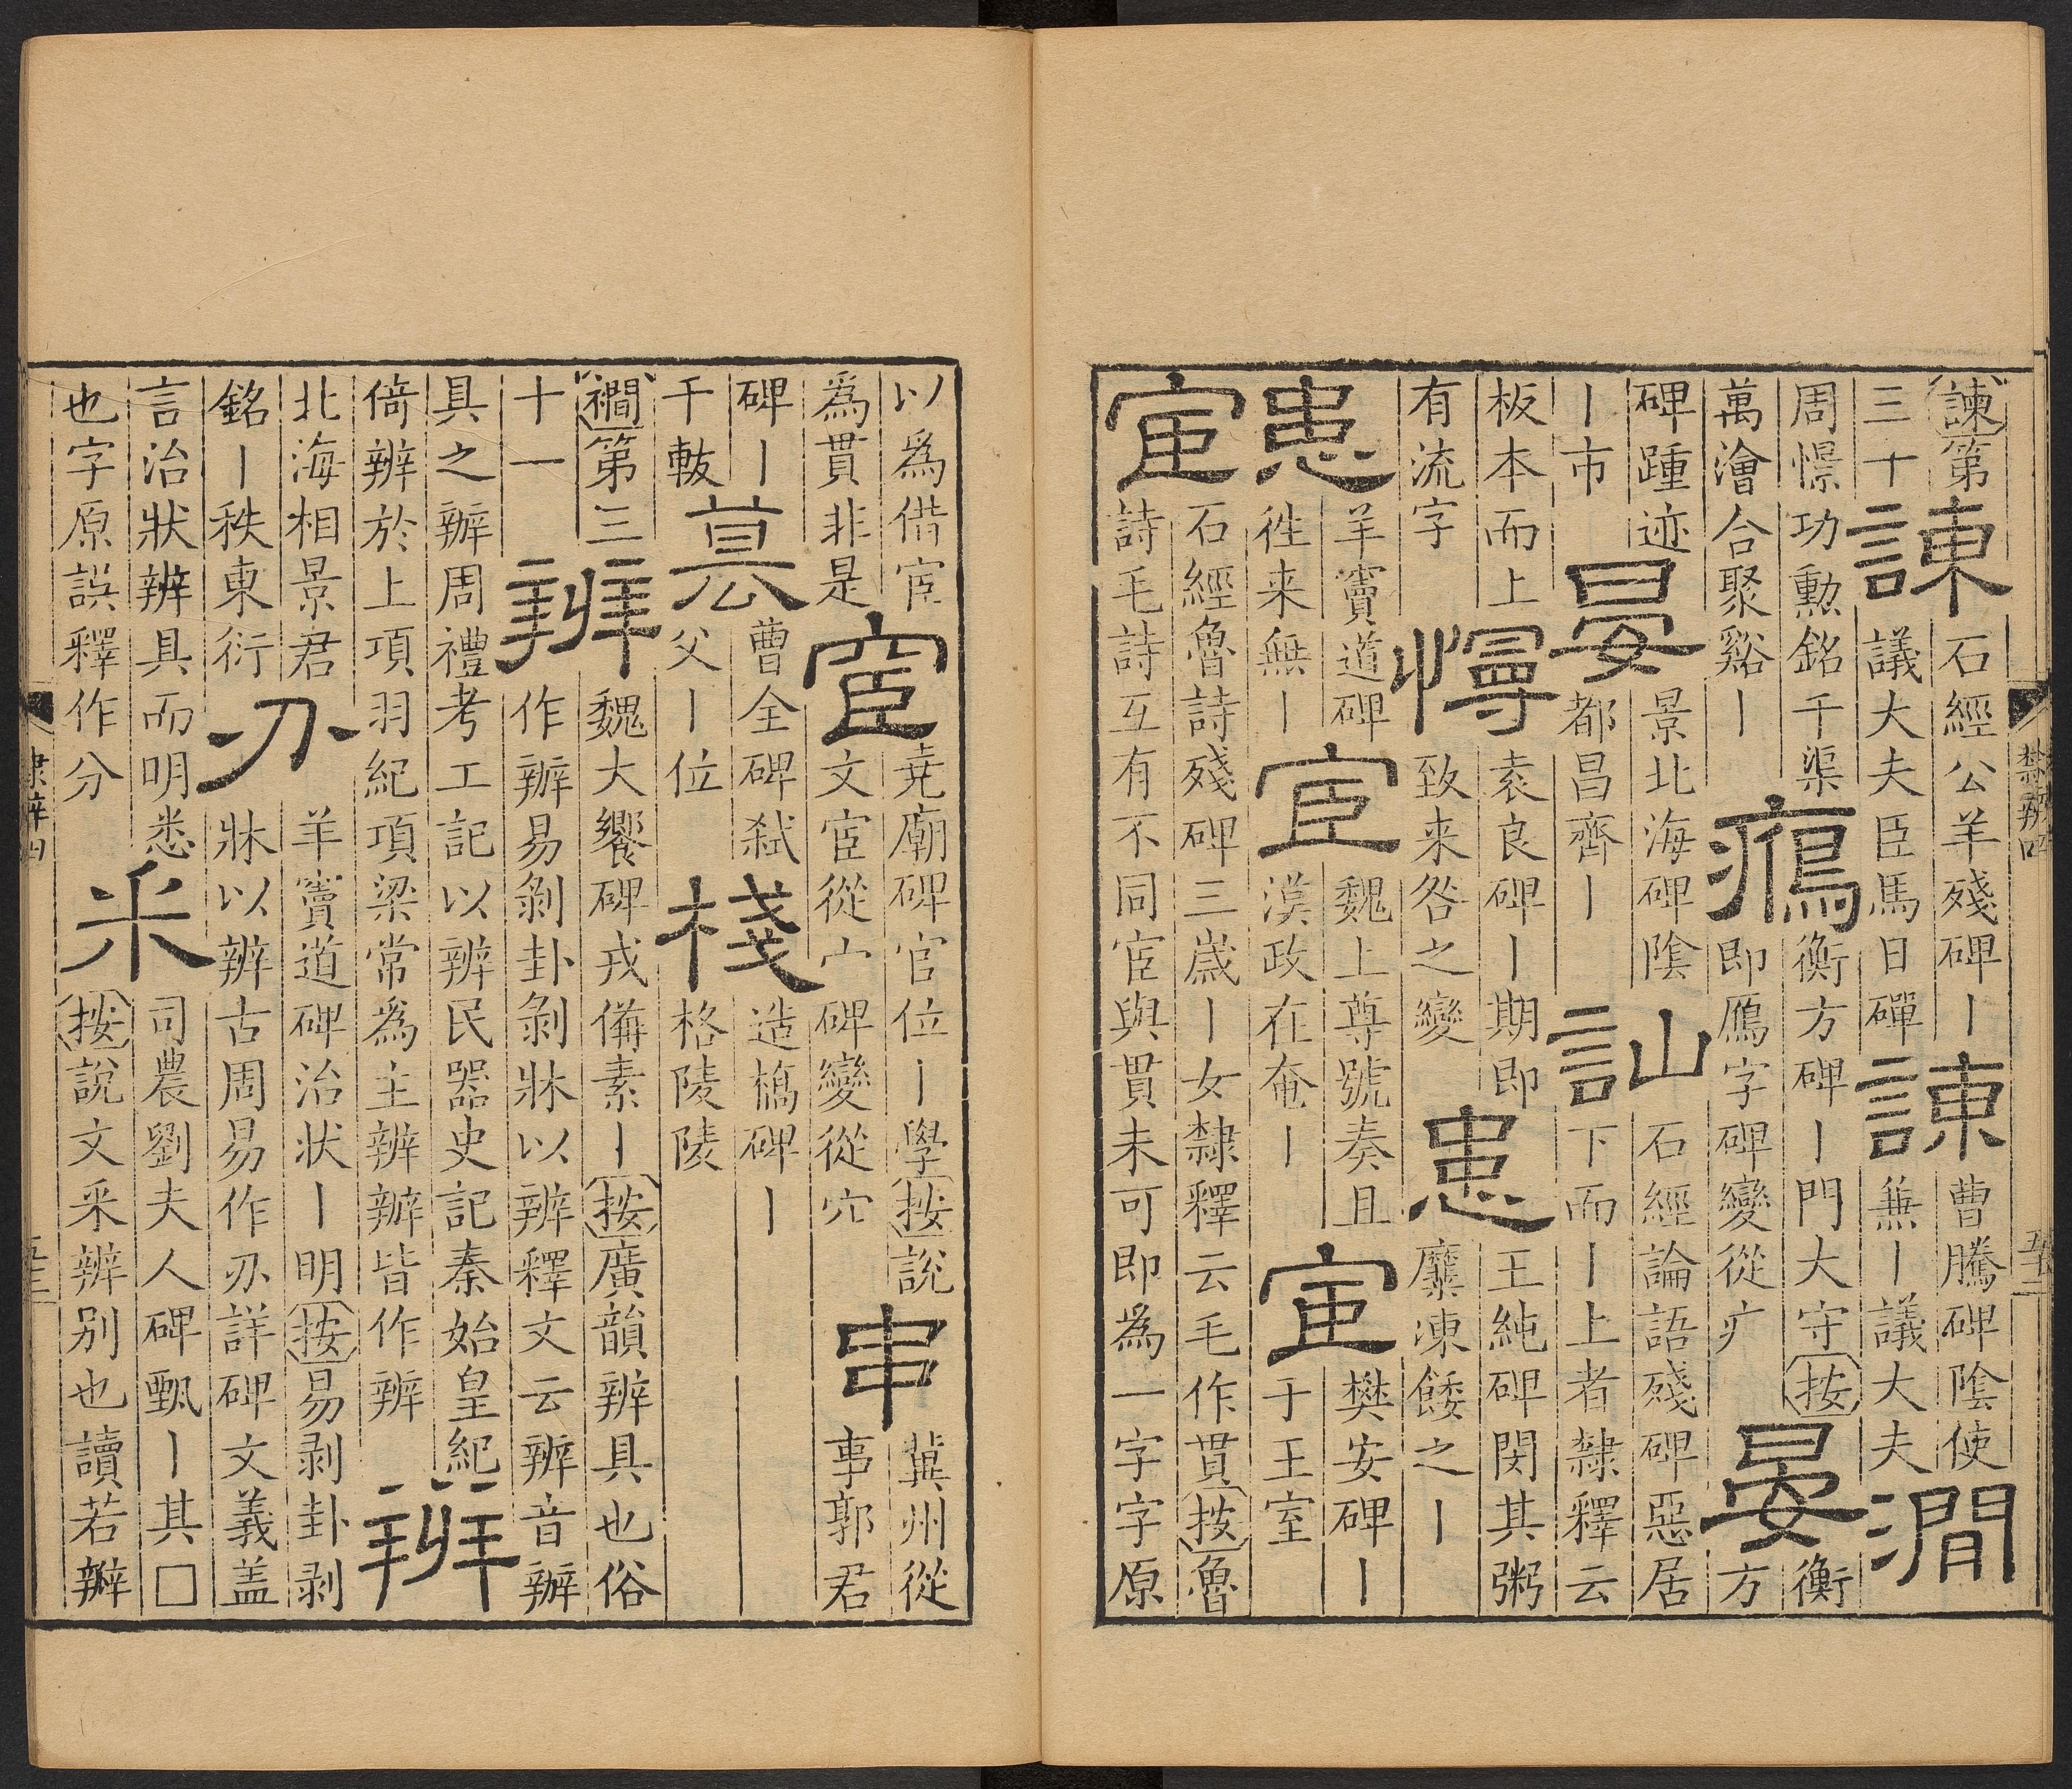 諫第
三十
諫
石經公羊殘碑丨
議大夫臣馬日磾
諫
曹騰碑陰使
兼丨議大夫
澗
周憬功勲銘千渠
萬澮合聚谿丨
衡方碑丨門大守按
即鴈字碑變從疒
晏
衡
方
碑踵迹
丨市
晏
景北海碑陰
都昌齊丨
訕
石經論語殘碑惡居
下而丨上者隸釋云
板本而上
有流字
慢
袁良碑丨期即
致来咎之變
患
王純碑閔其粥
糜凍餧之丨
患
羊竇道碑
徃来無丨
宦
魏上尊號奏且
漢政在奄丨
宦
樊安碑丨
于王室
宦
石經魯詩殘碑三歲丨女隸釋云毛作貫按魯
詩毛詩互有不同宦與貫未可即為一字字原
隸辨四
五十二
以為借宦
為貫非是
宦
堯廟碑官位丨學按説
文宦從宀碑變從穴
串
冀州從
事郭君
碑丨
干
曹全碑弑
父丨位
棧
造橋碑丨
格陵陵
襉第三
十一
辨
魏大饗碑戎備素丨按廣韻辨具也俗
作辦易剝卦剝牀以辨釋文云辨音辦
具之辦周禮考工記以辨民器史記秦始皇紀
倚辨於上項羽紀項梁常為主辨辦皆作辨
辨
北海相景君
銘丨秩東衍
刅
羊竇道碑治状丨明按易剥卦剥
牀以辨古周易作刅詳碑文義盖
言治狀辨具而明悉
也字原誤釋作分
釆
司農劉夫人碑甄丨其□
按説文釆辨别也讀若辨
隸辨四
五十二